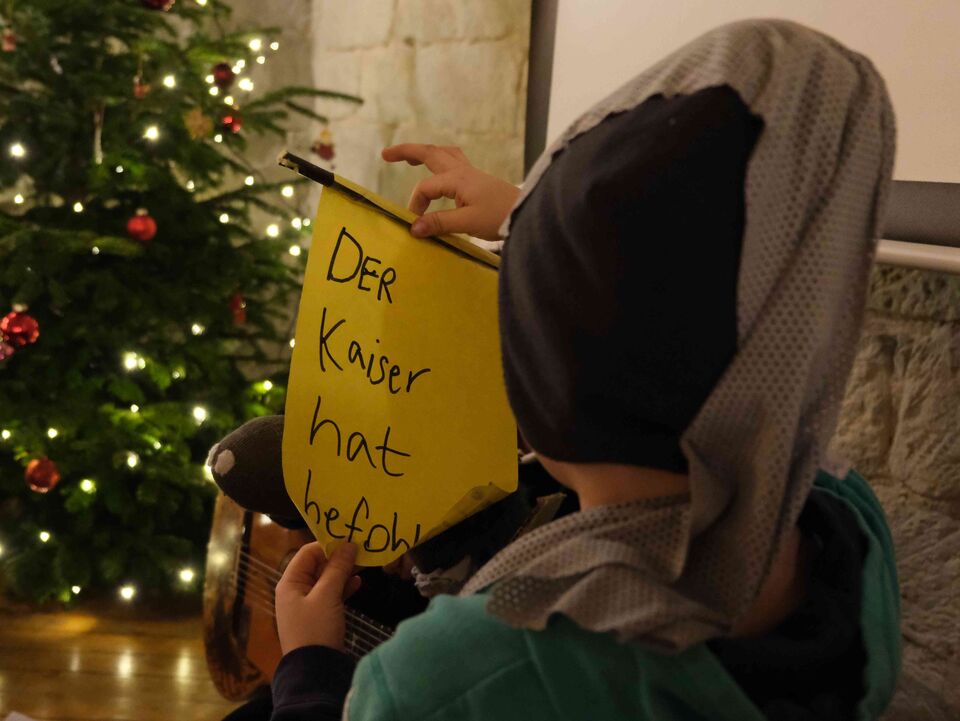 DER
Kaiser
hat
befohl